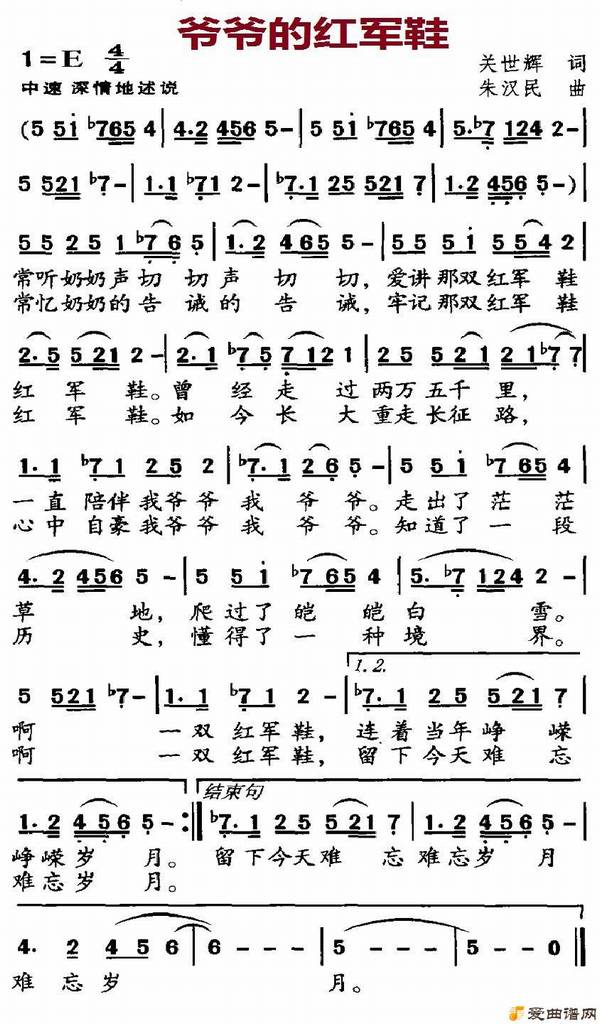 爷爷的红军鞋
1=E 4/4
关世辉 词
中速 深情地述说
朱汉民 曲
(5 55i ♭765 4 | 4.2 456 5- | 5 55i ♭765 4 | 5.♭7 124 2- |
5 521 ♭7- | 1.1 ♭71 2- | ♭7.1 25 521 7 | 1.2 456 5-)|
55 25 1 ♭76 5 | 1.2 465 5- | 55 51 55 4 2 |
常听奶奶声切切声切切,爱讲那双红军鞋
常忆奶奶的告诫的告诫,牢记那双红军鞋
2.5 521 2- | 2.1 ♭75 712 1 | 25 521 21 ♭7 7 |
红军鞋。曾经走过两万五千里,
红军鞋。如今长大重走长征路,
1.1 ♭71 25 2 | ♭7.1 26 5- | 5 5i ♭765 4 |
一直陪伴我爷爷我爷爷。走出了茫茫
心中自豪我爷爷我爷爷。知道了一段
4.2 456 5- | 5 5i ♭765 4 | 5.♭7 124 2- |
草地,爬过了皑皑白雪。
历史,懂得了一种境界。
1.2.
5 521 ♭7- | 1.1 ♭71 2- | ♭7.1 25 521 7 |
啊一双红军鞋,连着当年峥嵘
啊一双红军鞋,留下今天难忘
结束句
1.2 456 5- :| ♭7.1 25 521 7 | 1.2 456 5- |
峥嵘岁月。留下今天难忘难忘岁月
难忘岁月。
4. 2 456 6 | 6 - - - | 5 - - - | 5 - - 0 ‖
难忘岁月。
爱曲谱网